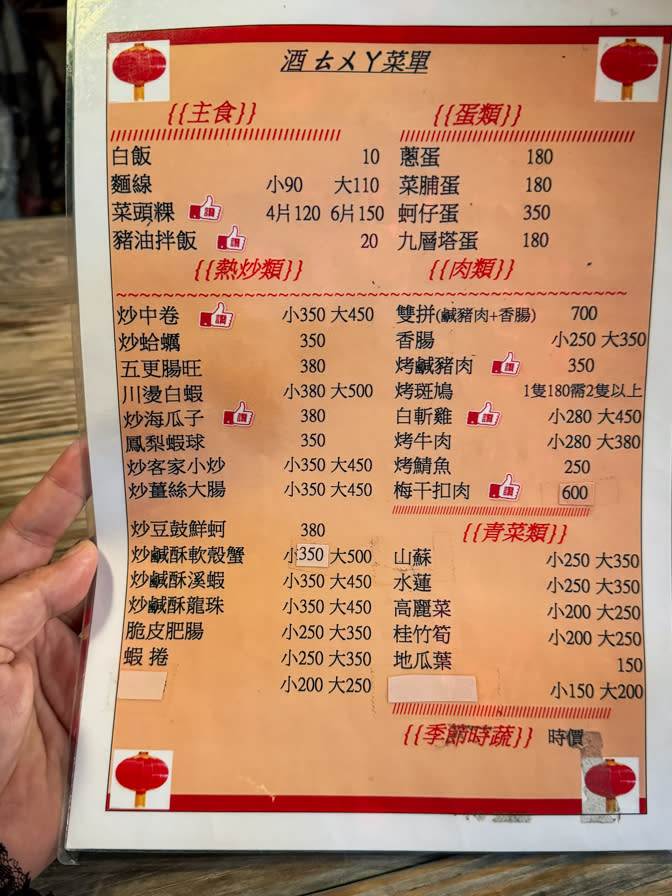 酒ㄊㄨㄚ菜單
{{主食}}
白飯 10
麵線 小90 大110
菜頭粿 讚 4片120 6片150
豬油拌飯 讚 20
{{蛋類}}
蔥蛋 180
菜脯蛋 180
蚵仔蛋 350
九層塔蛋 180
{{熱炒類}}
炒中卷 讚 小350 大450
炒蛤蠣 350
五更腸旺 380
川燙白蝦 小380 大500
炒海瓜子 讚 380
鳳梨蝦球 350
炒客家小炒 小350 大450
炒薑絲大腸 小350 大450
炒豆鼓鮮蚵 380
炒鹹酥軟殼蟹 小350 大500
炒鹹酥溪蝦 小350 大450
炒鹹酥龍珠 小350 大450
脆皮肥腸 小250 大350
蝦捲 小250 大350
小200 大250
{{肉類}}
雙拼(鹹豬肉+香腸) 700
香腸 小250 大350
烤鹹豬肉 讚 350
烤斑鳩 1隻180需2隻以上
白斬雞 讚 小280 大450
烤牛肉 小280 大380
烤鯖魚 250
梅干扣肉 讚 600
{{青菜類}}
山蘇 小250 大350
水蓮 小250 大350
高麗菜 小200 大250
桂竹筍 小200 大250
地瓜葉 150
小150 大200
{{季節時蔬}} 時價